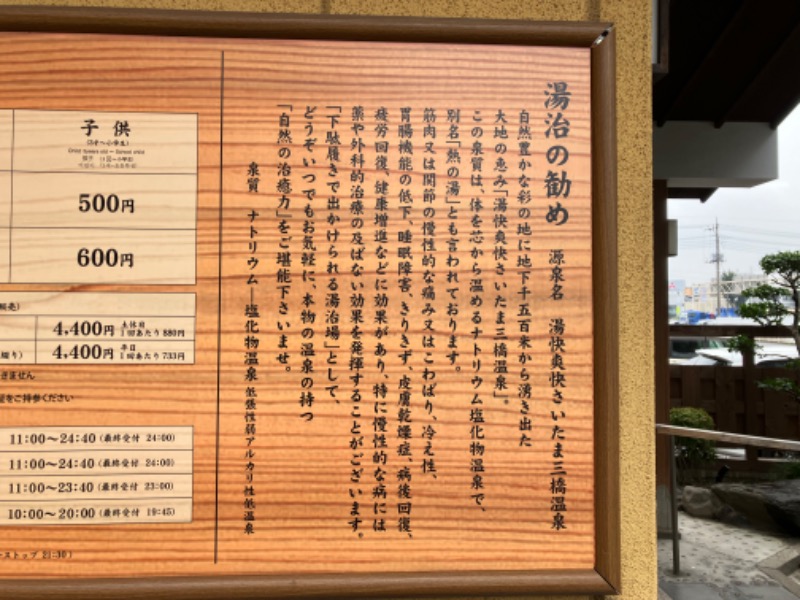 湯治の勧め 源泉名 湯快爽快さいたま三橋温泉
自然豊かな彩の地に地下千五百米から湧き出た
大地の恵み「湯快爽快さいたま三橋温泉」。
この泉質は、体を芯から温めるナトリウム塩化物温泉で、
別名「熱の湯」とも言われております。
筋肉又は関節の慢性的な痛み又はこわばり、冷え性、
胃腸機能の低下、睡眠障害、きりきず、皮膚乾燥症、病後回復、
疲労回復、健康増進などに効果があり、特に慢性的な病には
薬や外科的治療の及ばない効果を発揮することがございます。
「下駄履きで出かけられる湯治場」として、
どうぞいつでもお気軽に、本物の温泉の持つ
「自然の治癒力」をご堪能下さいませ。
泉質 ナトリウム―塩化物温泉 低張性弱アルカリ性低温泉
子供
500円
600円
4,400円 土休日 1回あたり 880円
4,400円 平日 1回あたり 733円
きません
をご持参ください
11:00〜24:40 (最終受付 24:00)
11:00〜24:40 (最終受付 24:00)
11:00〜23:40 (最終受付 23:00)
10:00〜20:00 (最終受付 19:45)
ーストップ 21:30)